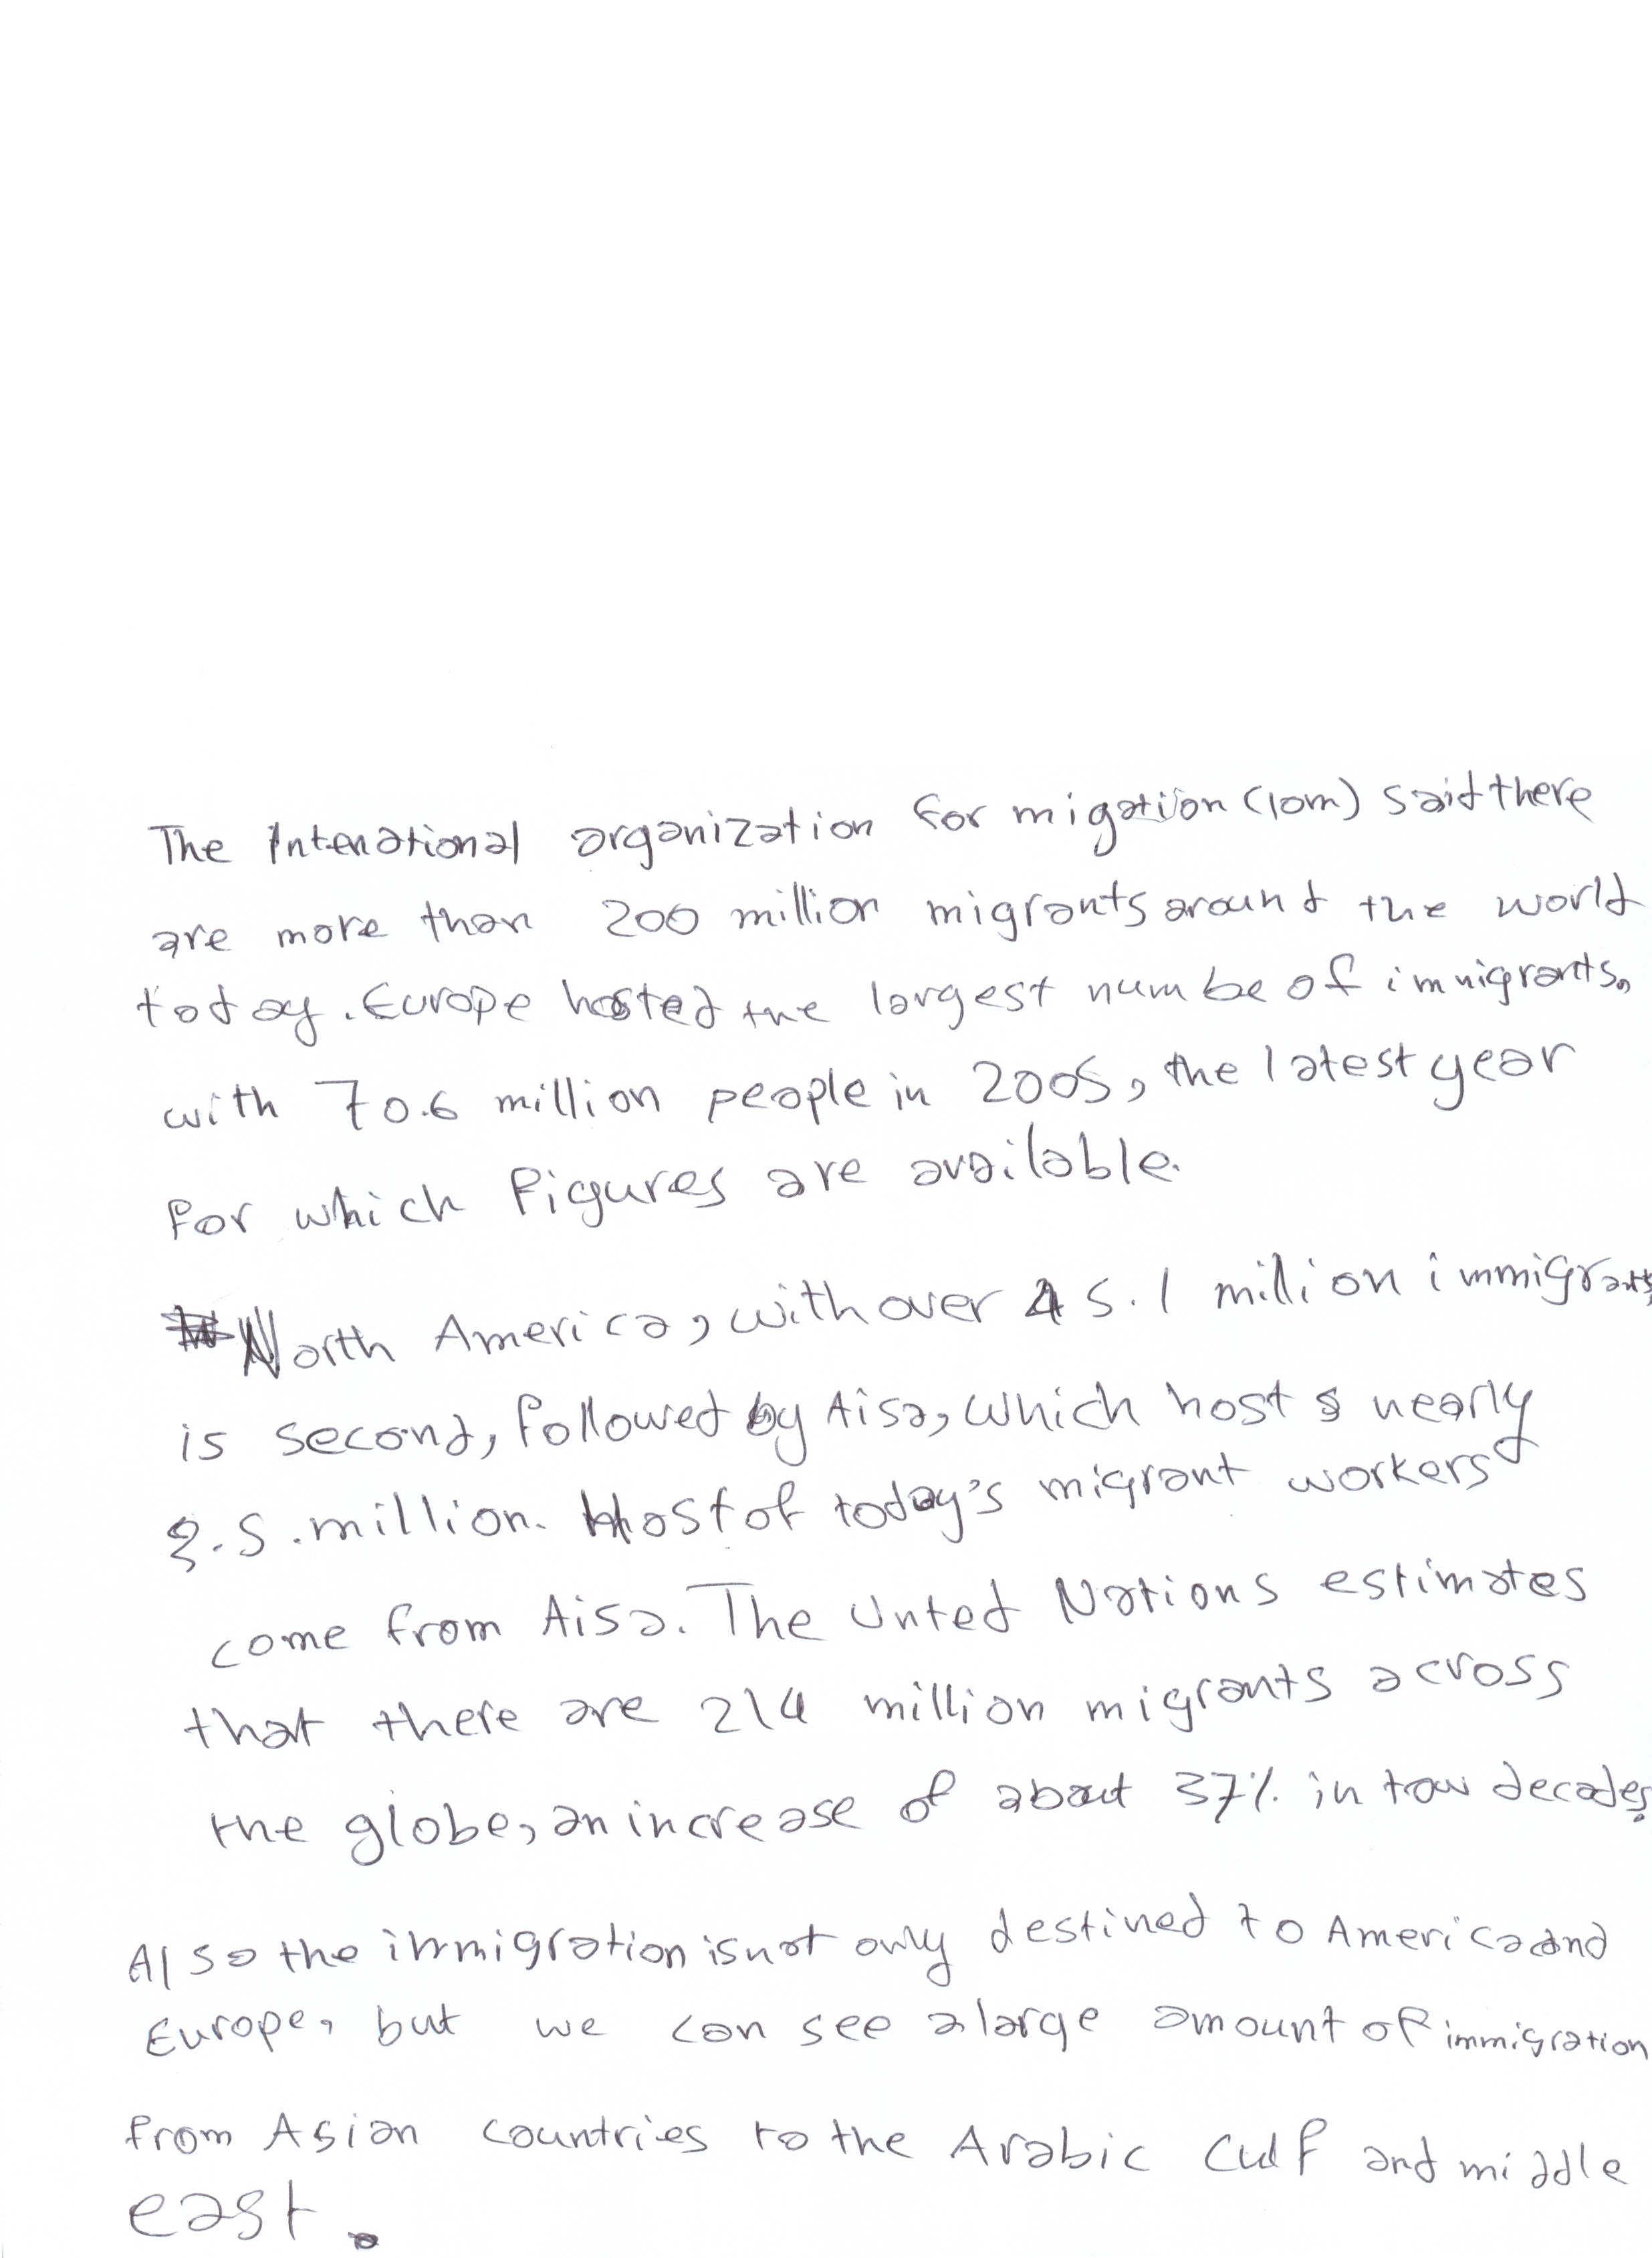 The Intenational organization for migation (iom) said there
are more than 200 million migrants around the world
today. Europe hosted the largest numbe of immigrants,
with 70.6 million people in 2005, the latest year
for which figures are available.
North America, with over 45.1 million immigrants
is second, followed by Aisa, which hosts nearly
2.5 .million. Most of today's migrant workers
come from Aisa. The Unted Nations estimates
that there are 214 million migrants across
the globe, an increase of about 37% in tow decades.
Also the immigration is not only destined to America and
Europe, but we can see a large amount of immigration
from Asian countries to the Arabic Culf and middle
east.